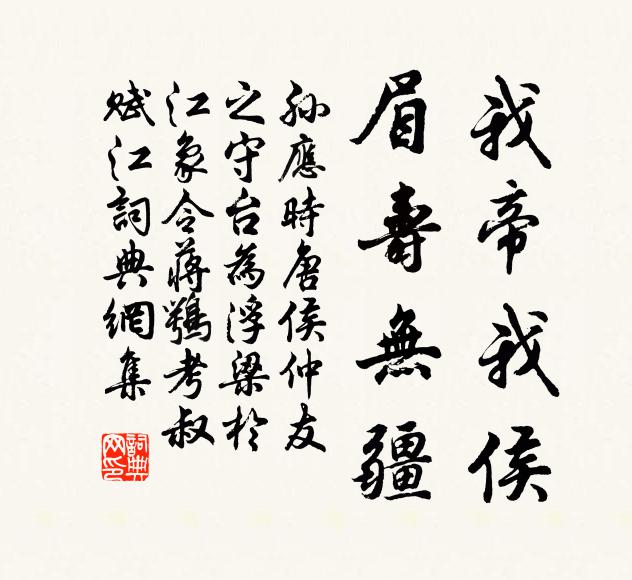 我帝我侯
眉壽無疆
孙應時唐侯仲友
之守台為浮梁於
江象令蔣鶚考叔
賦江詞典網集
詞典網印